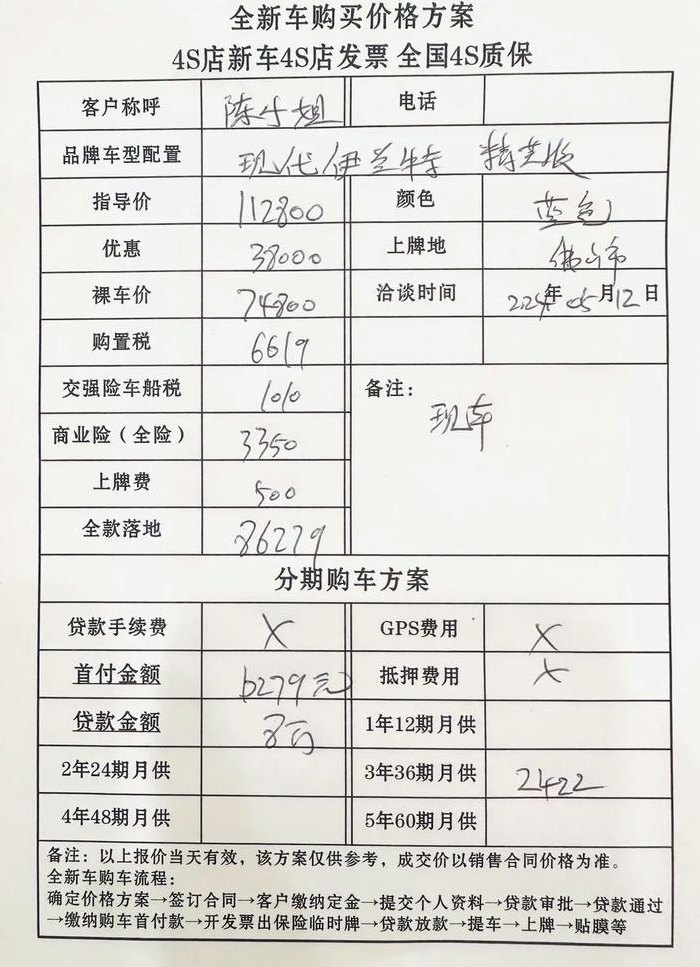 全新车购买价格方案
4S店新车4S店发票 全国4S质保
客户称呼 陈小姐 电话
品牌车型配置 现代伊兰特 精英版
指导价 112800 颜色 蓝色
优惠 38000 上牌地 佛山市
裸车价 74800 洽谈时间 2024年05月12日
购置税 6619
交强险车船税 1010 备注：
现车
商业险（全险） 3350
上牌费 500
全款落地 86279
分期购车方案
贷款手续费 X GPS费用 X
首付金额 6279元 抵押费用 X
贷款金额 8万 1年12期月供
2年24期月供 3年36期月供 2422
4年48期月供 5年60期月供
备注：以上报价当天有效，该方案仅供参考，成交价以销售合同价格为准。
全新车购车流程：
确定价格方案→签订合同→客户缴纳定金→提交个人资料→贷款审批→贷款通过
→缴纳购车首付款→开发票出保险临时牌→贷款放款→提车→上牌→贴膜等